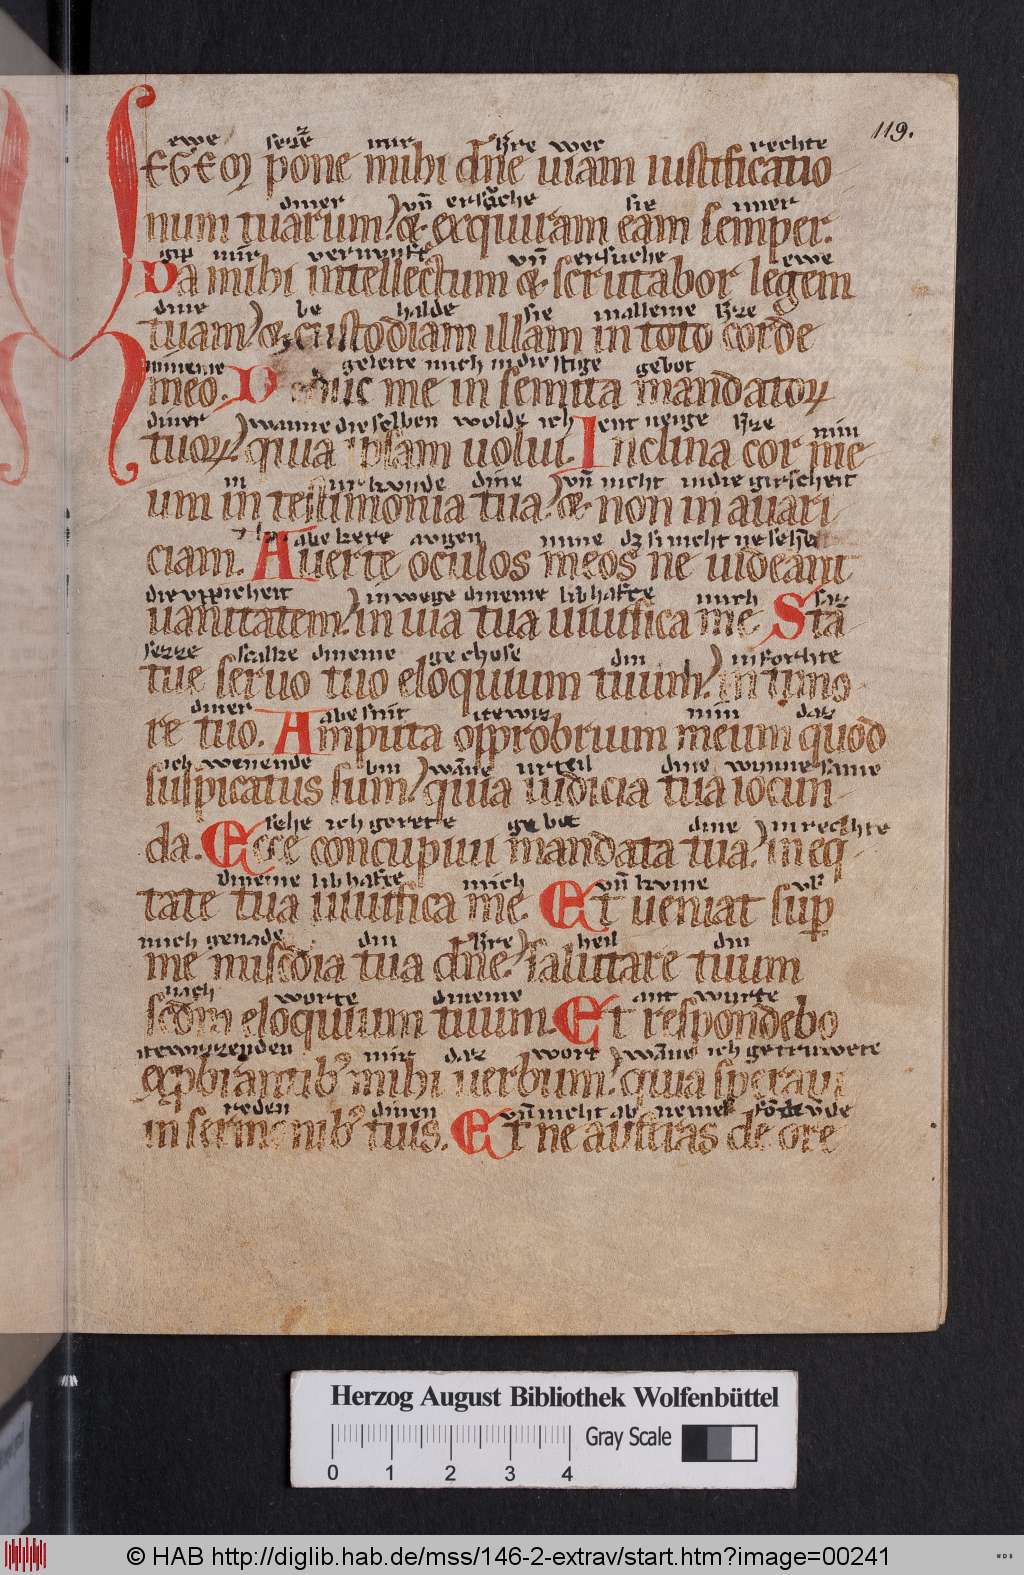 119.
ewe setze mir h're wec rechte
LEGEM pone mihi dn̄e uiam iustificatio
diner vn̄ ersuͦche sie imer
num tuarum. & exquiram eam semper.
gip mir vernunft vn̄ ersuche ewe
Da mihi intellectum & scrutabor legem
dine be halde sie in alleme h're
tuam & custodiam illam in toto corde
mineme geleite mich in die stige gebot
meo. Deduc me in semita mandatoꝝ
diner wanne die selben wolde ich neige h're min
tuoꝝ. quia ipsam uolui. Inclina cor me
in urkunde dine vn̄ nicht in die girscheit
um in testimonia tua. & non in auari
abe kere augen mine dz si nicht ne sehen
ciam. Auerte oculos meos ne uideant
die vppicheit in wege dineme libhafte mich
uanitatem. in uia tua uiuifica me Sta
setze scalke dineme gechose din in forchte
tue seruo tuo eloquium tuum. in timo
diner abe snit itewiz min daz
re tuo. Amputa opprobrium meum quod
ich wenende bin wāne urteil dine wunnesame
suspicatus sum. quia iudicia tua iocun
sehe ich gerete gebot dine in rechte
da. Ecce concupiui mandata tua. in eq
dineme libhafte mich vn̄ kume
tate tua uiuifica me. Et ueniat sup
mich genade din h're heil din
me mis̄cdia tua dn̄e. salutare tuum
nach worte dineme ant wurte
sc̄dm eloquium tuum. Et respondebo
itewizzenden mir daz wort wāne ich getruwete
exp̄brantib' mihi uerbum. quia speraui
reden dinen vn̄ nicht ab nemest
in sermonib' tuis. Et ne auferas de ore
Herzog August Bibliothek Wolfenbüttel
0 1 2 3 4 Gray Scale
© HAB http://diglib.hab.de/mss/146-2-extrav/start.htm?image=00241